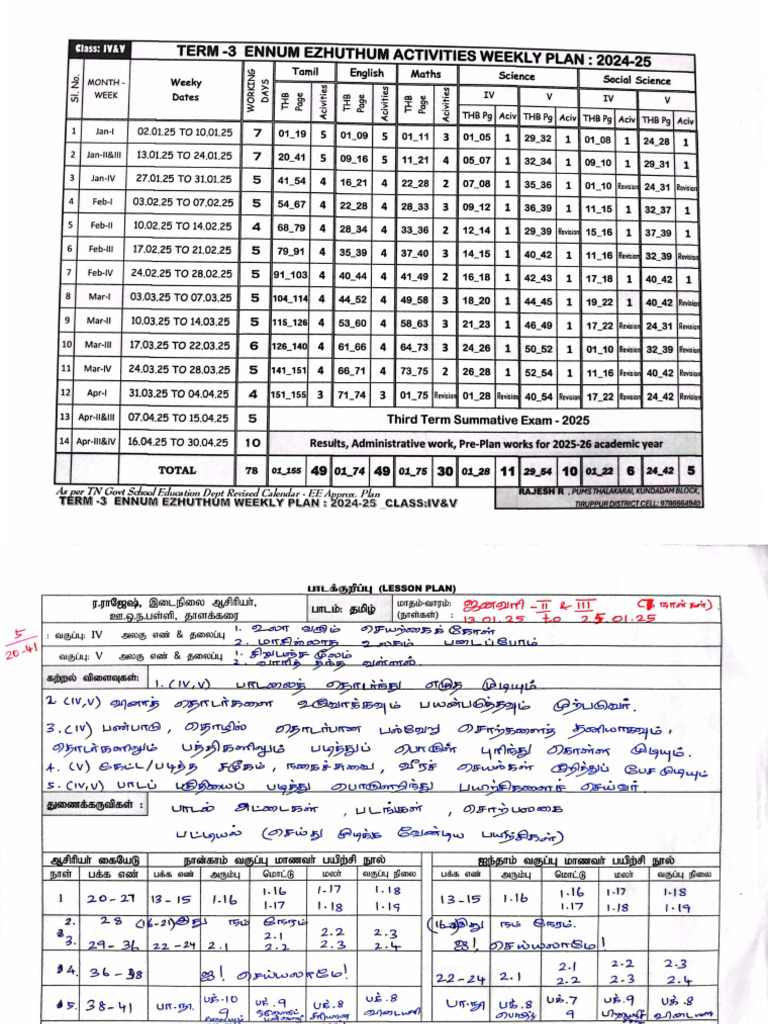 Class: IV&V
TERM -3 ENNUM EZHUTHUM ACTIVITIES WEEKLY PLAN : 2024-25
Sl. No. MONTH - WEEK Weeky Dates WORKING DAYS Tamil English Maths Science Social Science
IV V IV V
THB Page Acivities THB Page Acivities THB Page Acivities THB Pg Aciv THB Pg Aciv THB Pg Aciv THB Pg Aciv
1 Jan-I 02.01.25 TO 10.01.25 7 01_19 5 01_09 5 01_11 3 01_05 1 29_32 1 01_08 1 24_28 1
2 Jan-II&III 13.01.25 TO 24.01.25 7 20_41 5 09_16 5 11_21 4 05_07 1 32_34 1 09_10 1 29_31 1
3 Jan-IV 27.01.25 TO 31.01.25 5 41_54 4 16_21 4 22_28 2 07_08 1 35_36 1 01_10 Revision 24_31 Revision
4 Feb-I 03.02.25 TO 07.02.25 5 54_67 4 22_28 4 28_33 3 09_12 1 36_39 1 11_15 1 32_37 1
5 Feb-II 10.02.25 TO 14.02.25 4 68_79 4 28_34 4 33_36 2 12_14 1 29_39 Revision 15_16 1 37_39 1
6 Feb-III 17.02.25 TO 21.02.25 5 79_91 4 35_39 4 37_40 3 14_15 1 40_42 1 11_16 Revision 32_39 Revision
7 Feb-IV 24.02.25 TO 28.02.25 5 91_103 4 40_44 4 41_49 2 16_18 1 42_43 1 17_18 1 40_42 1
8 Mar-I 03.03.25 TO 07.03.25 5 104_114 4 44_52 4 49_58 3 18_20 1 44_45 1 19_22 1 40_42 Revision
9 Mar-II 10.03.25 TO 14.03.25 5 115_126 4 53_60 4 58_63 3 21_23 1 46_49 1 17_22 Revision 24_31 Revision
10 Mar-III 17.03.25 TO 22.03.25 6 126_140 4 61_66 4 64_73 3 24_26 1 50_52 1 01_10 Revision 32_39 Revision
11 Mar-IV 24.03.25 TO 28.03.25 5 141_151 4 66_71 4 73_75 2 26_28 1 52_54 1 11_16 Revision 40_42 Revision
12 Apr-I 31.03.25 TO 04.04.25 4 151_155 3 71_74 3 01_75 Revision 01_28 Revision 40_54 Revision 17_22 Revision 24_42 Revision
13 Apr-II&III 07.04.25 TO 15.04.25 5 Third Term Summative Exam - 2025
14 Apr-III&IV 16.04.25 TO 30.04.25 10 Results, Administrative work, Pre-Plan works for 2025-26 academic year
TOTAL 78 01_155 49 01_74 49 01_75 30 01_28 11 29_54 10 01_22 6 24_42 5
As per TN Govt School Education Dept Revised Calendar - EE Approx. Plan
RAJESH R , PUMS THALAKARAI, KUNDADAM BLOCK,
TERM -3 ENNUM EZHUTHUM WEEKLY PLAN : 2024-25 _CLASS:IV&V
TIRUPPUR DISTRICT CELL: 9786664940
பாடக்குறிப்பு (LESSON PLAN)
ர.ராஜேஷ், இடைநிலை ஆசிரியர்,
ஊ.ஒ.ந.பள்ளி, தாளக்கரை
பாடம்: தமிழ்
மாதம்-வாரம்: ஜனவரி - II & III (7 நாள்கள்)
(நாள்கள்) : 13.01.25 to 25.01.25
5
20-41
: வகுப்பு: IV அலகு எண் & தலைப்பு 1. உலா வரும் செயற்கைக்கோள்
2. மாசில்லாத உலகம் படைப்போம்
வகுப்பு: V அலகு எண் & தலைப்பு 1. சிறுபஞ்ச மூலம்
2. வாரித் தந்த வள்ளல்
கற்றல் விளைவுகள்: 1. (IV,V) பாடலைத் தொடர்ந்து எழுத முடியும்.
2 (IV,V) வினாத் தொடர்களை உருவாக்கவும் பயன்படுத்தவும் முற்படுவர்.
3. (IV) பண்பாடு, தொழில் தொடர்பான பல்வேறு சொற்களைத் தனியாகவும்,
தொடர்களிலும் பத்திகளிலும் படித்துப் பொருள் புரிந்து கொள்ள முடியும்.
4. (V) கேட்ட/படித்த சமூகம், நகைச்சுவை, வீரச் செயல்கள் குறித்துப் பேச முடியும்
5. (IV,V) பாடப் பகுதியைப் படித்து பொருளறிந்து பயிற்சிகளைச் செய்வர்.
துணைக்கருவிகள் : பாடல் அட்டைகள், படங்கள், சொற்பலகை
பட்டியல் (செய்து முடிக்க வேண்டிய பயிற்சிகள்)
ஆசிரியர் கையேடு நான்காம் வகுப்பு மாணவர் பயிற்சி நூல் ஐந்தாம் வகுப்பு மாணவர் பயிற்சி நூல்
நாள் பக்க எண் பக்க எண் அரும்பு மொட்டு மலர் வகுப்பு நிலை பக்க எண் அரும்பு மொட்டு மலர் வகுப்பு நிலை
1 20-27 13-15 1.16 1.16 1.17 1.18 13-15 1.16 1.16 1.17 1.18
1.17 1.18 1.19 1.17 1.18 1.19
2. 28 (16-21) இது நம் நேரம் இது நம் நேரம்.
3. 29-36 22-24 2.1 2.1 2.2 2.3 ஜ! செய்யலாமே!
2.2 2.3 2.4
4. 36-38 ஜ! செய்யலாமே! 22-24 2.1 2.1 2.2 2.3
2.2 2.3 2.4
5. 38-41 பா.நூ பக்.10 பக்.9 பக்.8 பக்.8 பா.நூ பக்.8 பக்.7 பக்.9 பக்.8
9 9